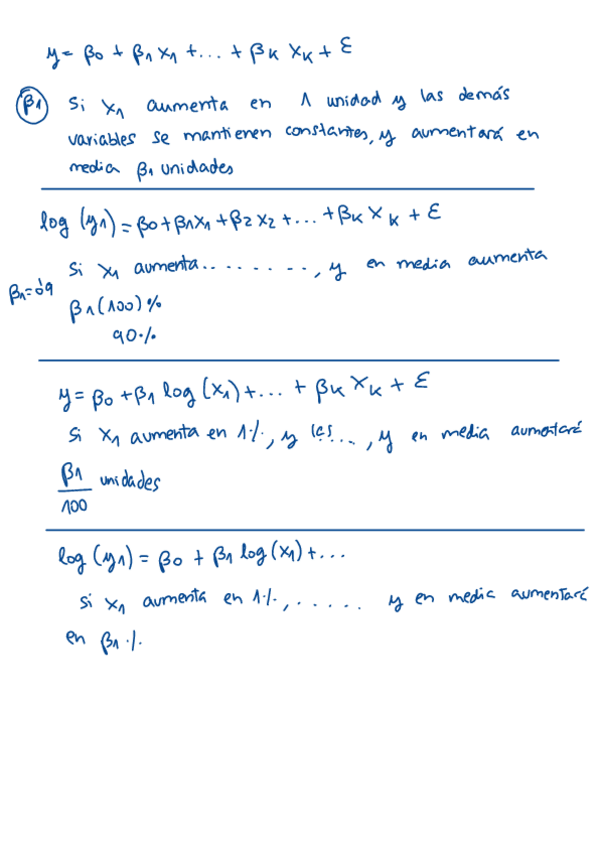 y = β0 + β1 x1 + ... + βK XK + ε
β1 Si x1 aumenta en 1 unidad y las demás
variables se mantienen constantes, y aumentará en
media β1 unidades
log (y1) = β0 + β1x1 + β2 x2 + ... + βK XK + ε
Si x1 aumenta........., y en media aumenta
β1=0'9
β1(100)%
90%
y = β0 + β1 log (x1) + ... + βK XK + ε
Si x1 aumenta en 1%, y les..., y en media aumentaré
β1/100 unidades
log (y1) = β0 + β1 log(x1) + ...
Si x1 aumenta en 1%, ..... y en media aumentaré
en β1 %